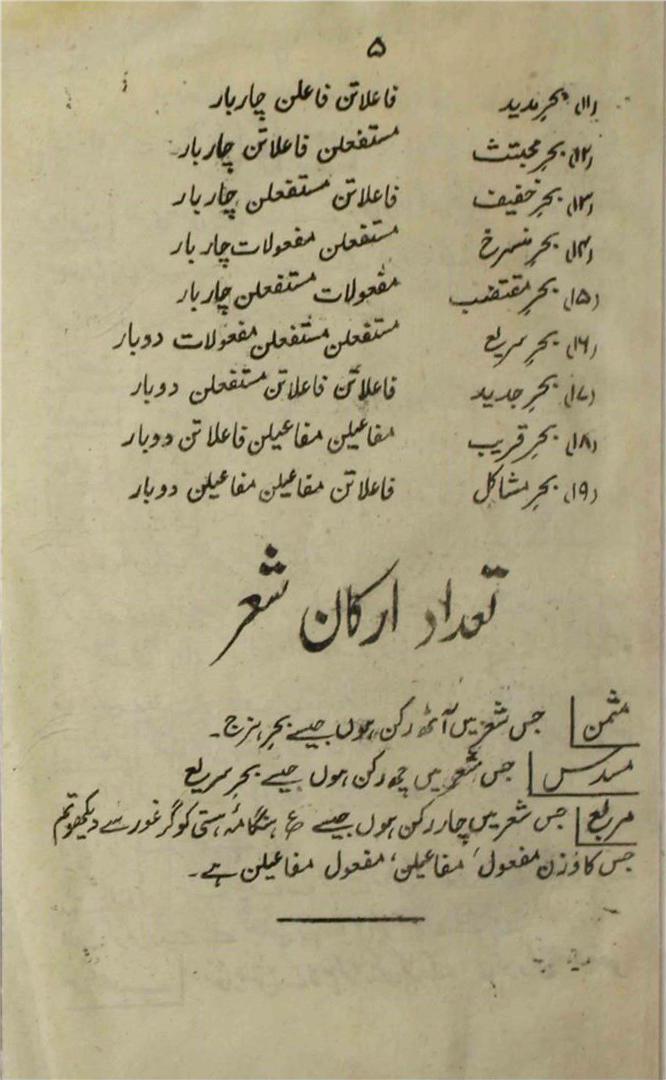 ۵
(۱۱) بحرِ مدید فاعلاتن فاعلن چار بار
(۱۲) بحرِ مجتث مستفعلن فاعلاتن چار بار
(۱۳) بحرِ خفیف فاعلاتن مستفعلن چار بار
(۱۴) بحرِ منسرح مستفعلن مفعولات چار بار
(۱۵) بحرِ مقتضب مفعولات مستفعلن چار بار
(۱۶) بحرِ سریع مستفعلن مستفعلن مفعولات دو بار
(۱۷) بحرِ جدید فاعلاتن فاعلاتن مستفعلن دو بار
(۱۸) بحرِ قریب مفاعیلن مفاعیلن فاعلاتن دو بار
(۱۹) بحرِ مشاکل فاعلاتن مفاعیلن مفاعیلن دو بار
تعداد ارکان شعر
مثمن جس شعر میں آٹھ رکن ہوں جیسے بحر ہزج۔
مسدس جس شعر میں چھ رکن ہوں جیسے بحر سریع
مربع جس شعر میں چار رکن ہوں جیسے ع ہنگامۂ ہستی کو گر غور سے دیکھو تم
جس کا وزن مفعول، مفاعیلن، مفعول مفاعیلن ہے۔